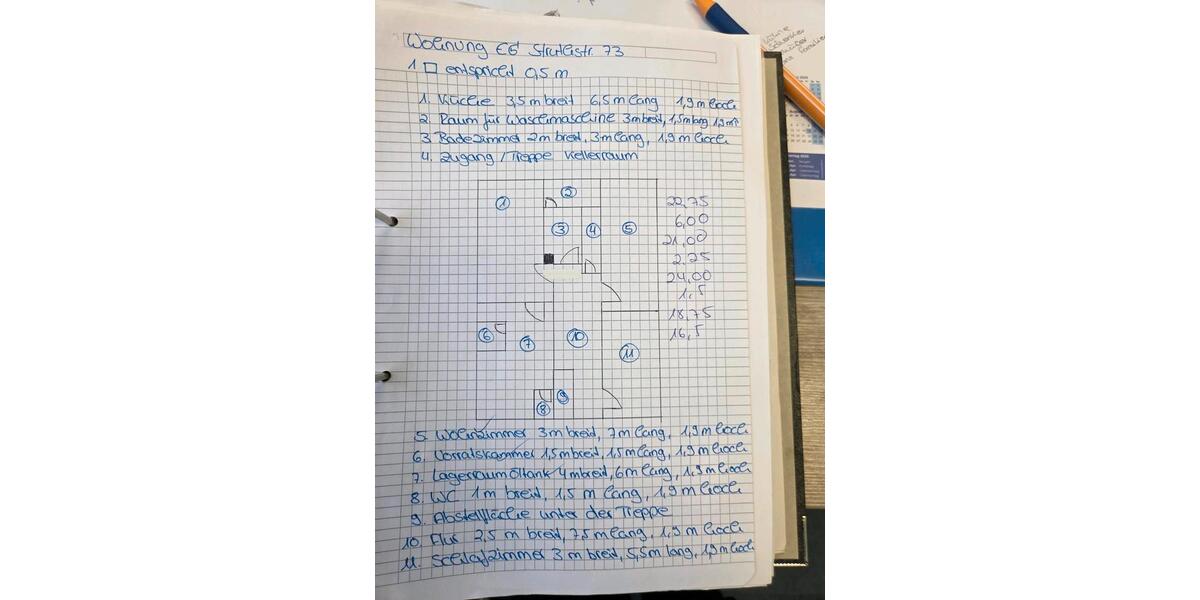 Wohnung EG Strutstr. 73
1 □ entspricht 0,5 m
1. Küche 3,5 m breit 6,5 m lang 1,9 m hoch
2 Raum für Waschmaschine 3m breit, 1,5m lang 1,9m h
3 Badezimmer 2m breit, 3m lang, 1,9 m hoch
4. Zugang / Treppe Kellerraum
1
2
3
4
5
6
7
8
9
10
11
22,75
6,00
21,00
2.25
24,00
1,5
18,75
16,5
5. Wohnzimmer 3m breit, 7m lang, 1,9m hoch
6. Vorratskammer 1,5m breit, 1,5m lang, 1,9m hoch
7. Lagerraum Öltank 4m breit, 6m lang, 1.9m hoch
8. WC 1m breit, 1,5 m lang, 1,9 m hoch
9. Abstellfläche unter der Treppe
10. Flur 2,5 m breit, 7,5m lang, 1,9 m hoch
11. Schlafzimmer 3 m breit, 5,5m lang, 1,9m hoch